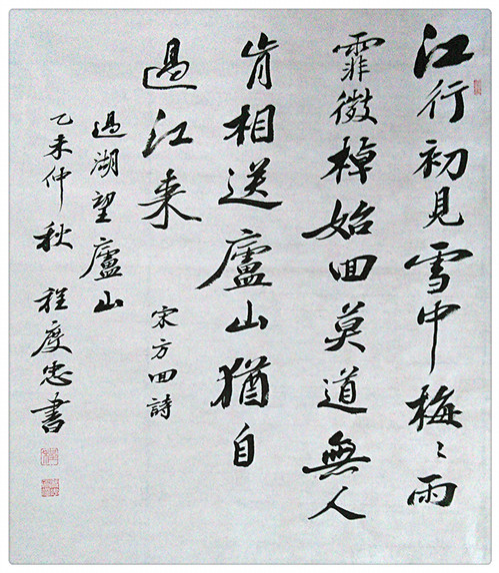 江行初見雪中梅〻雨
霏微棹始囬莫道無人
肯相送廬山猶自
過江来
宋方囬詩
過湖望廬山
乙未仲秋 程度忠書